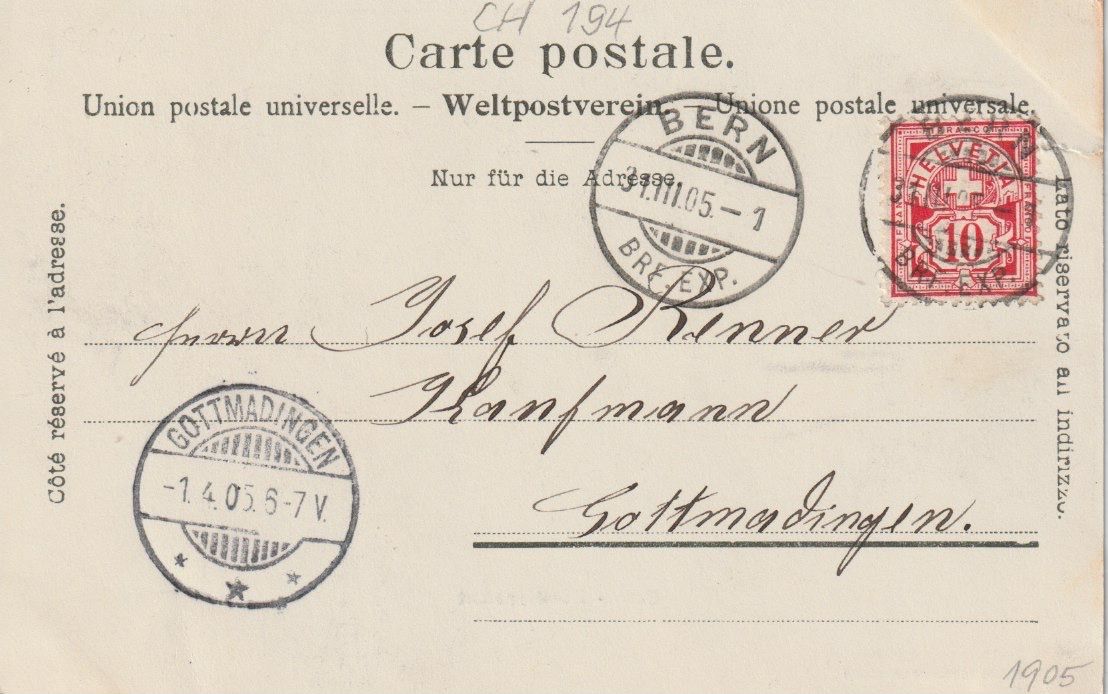 CH 194
Carte postale.
Union postale universelle. – Weltpostverein. – Unione postale universale.
Nur für die Adresse.
BERN
31.III.05.–1
BRF.EXP.
BERN
FRANCO
HELVETIA
10
BRF.EXP.
Côté réservé à l'adresse.
Lato riservato all indirizzo.
Herrn Josef Renner
Kaufmann
Gottmadingen.
GOTTMADINGEN
-1.4.05.6-7V.
1905